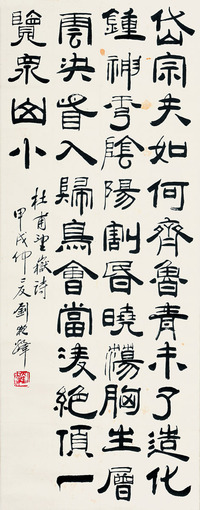 岱宗夫如何齊魯青未了造化
鍾神秀陰陽割昏曉蕩胸生層
雲決眥入歸鳥會當淩絕頂一
覽眾山小
杜甫望嶽詩
甲戌仲夏劉